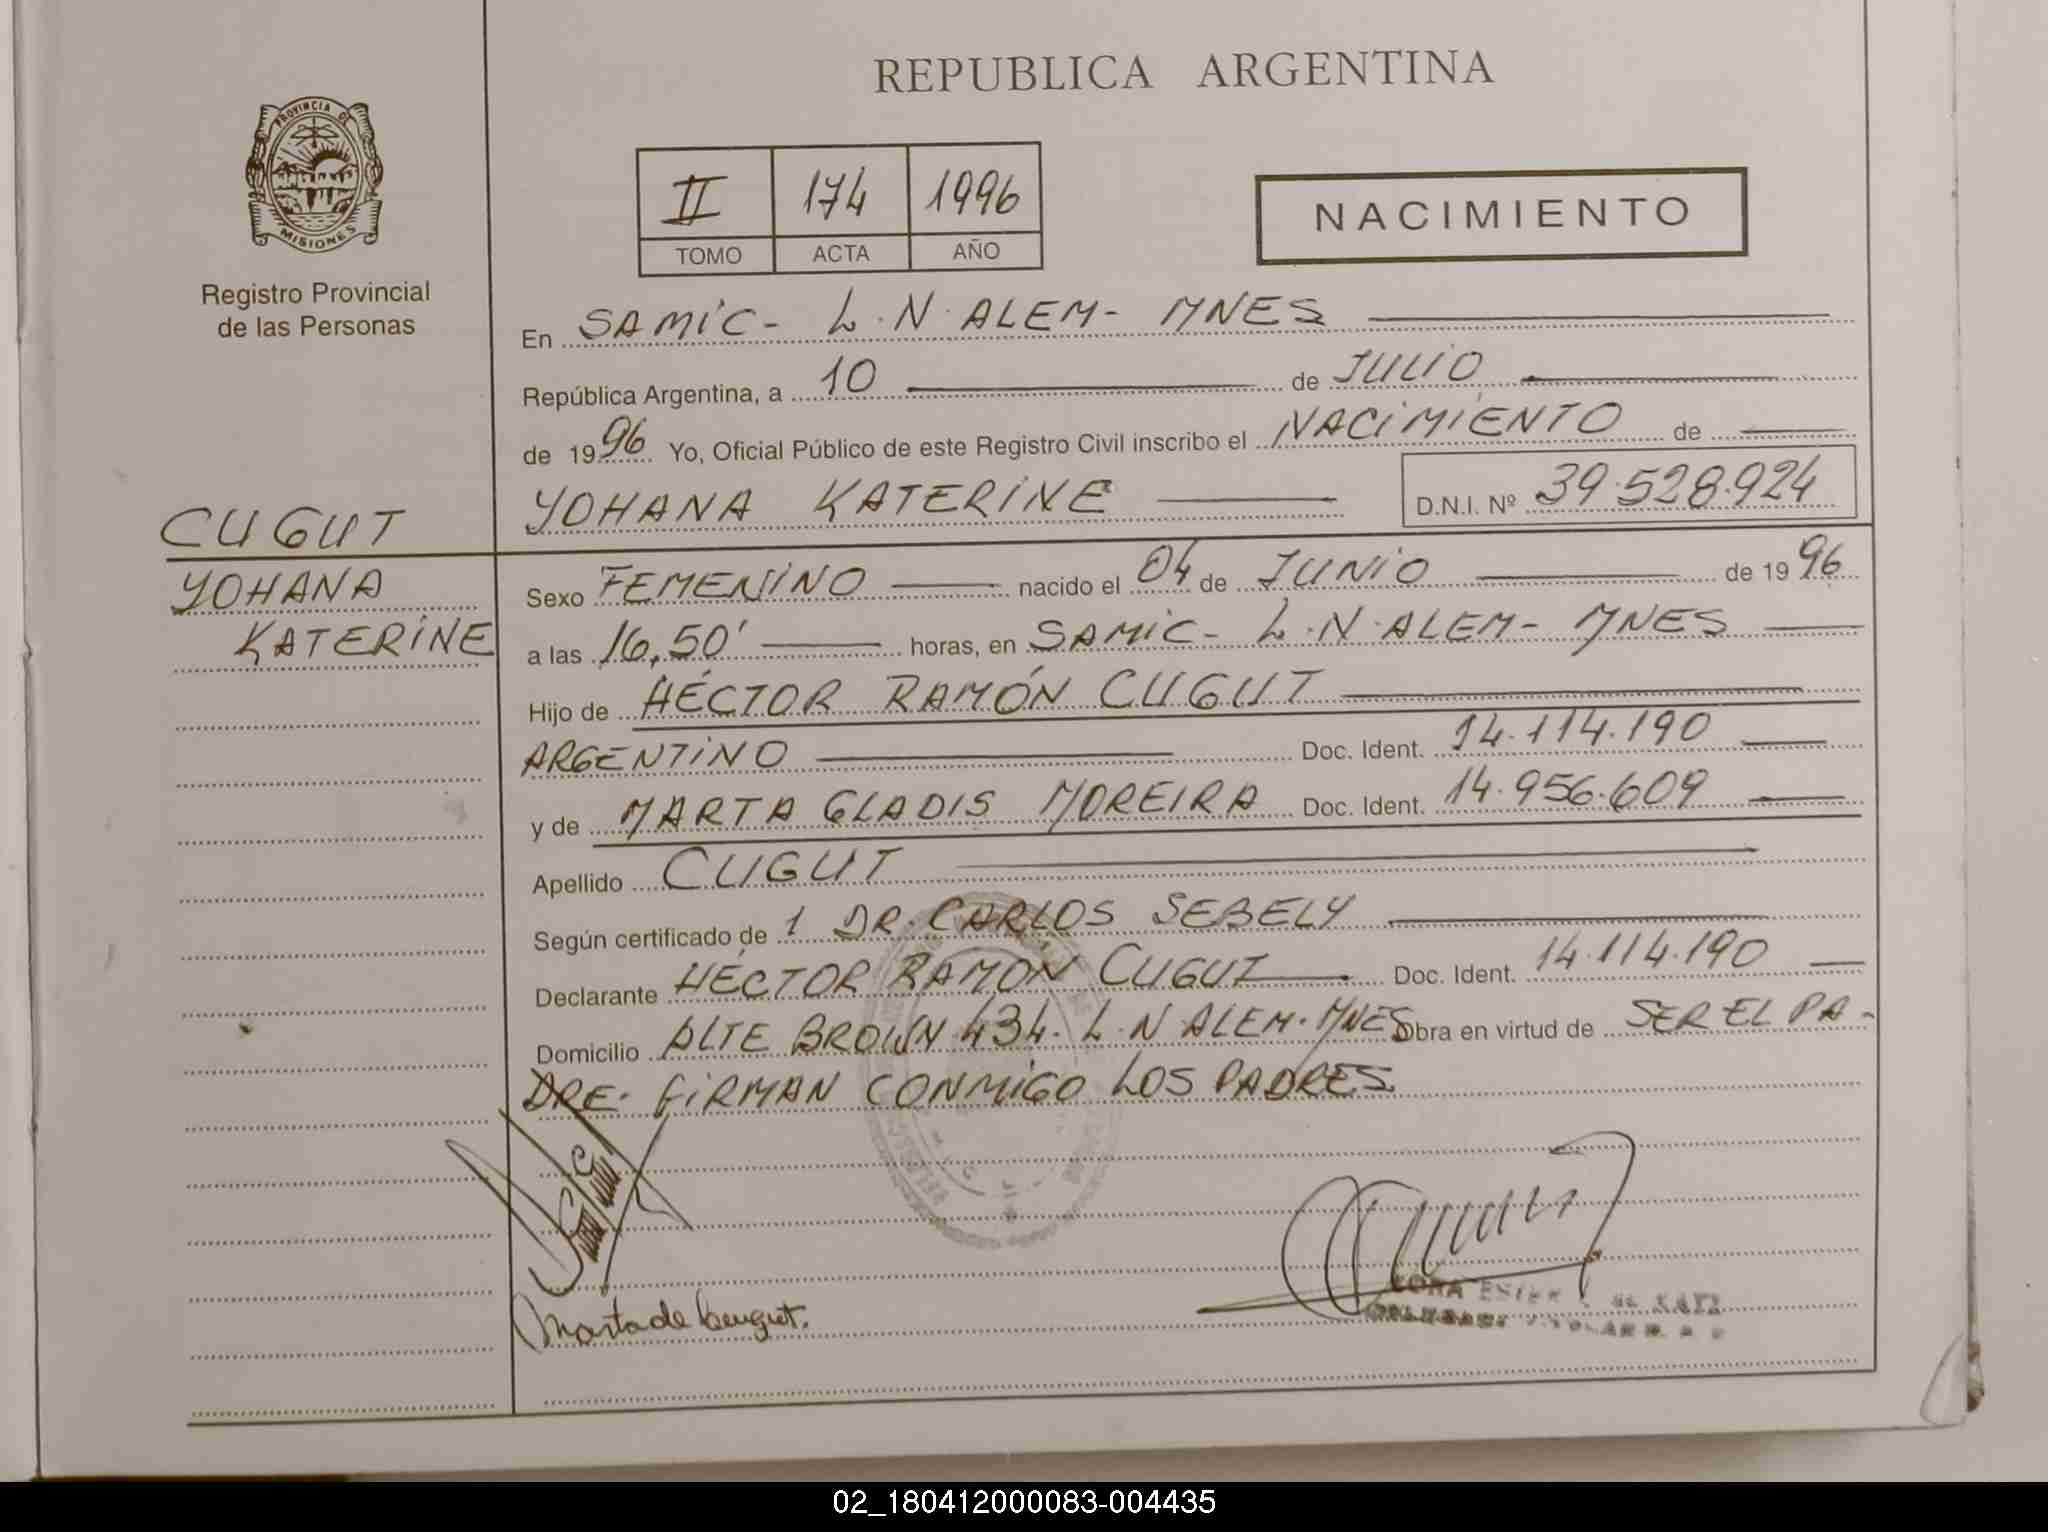 PROVINCIA DE
MISIONES
Registro Provincial
de las Personas
CUGUT
YOHANA
KATERINE
REPUBLICA ARGENTINA
II 174 1996
TOMO ACTA AÑO
NACIMIENTO
En SAMIC - L.N. ALEM - MNES
República Argentina, a 10 de JULIO
de 1996 Yo, Oficial Público de este Registro Civil inscribo el NACIMIENTO de
YOHANA KATERINE D.N.I. Nº 39.528.924
Sexo FEMENINO nacido el 04 de JUNIO de 1996
a las 16,50' horas, en SAMIC - L.N. ALEM - MNES
Hijo de HÉCTOR RAMÓN CUGUT
ARGENTINO Doc. Ident. 14.114.190
y de MARTA GLADIS MOREIRA Doc. Ident. 14.956.609
Apellido CUGUT
Según certificado de 1 DR. CARLOS SEBELY
Declarante HÉCTOR RAMON CUGUT Doc. Ident. 14.114.190
Domicilio ALTE BROWN 434. L.N. ALEM. MNES Obra en virtud de SER EL PA-
DRE. FIRMAN CONMIGO LOS PADRES
Marta de Cugut.
02_180412000083-004435